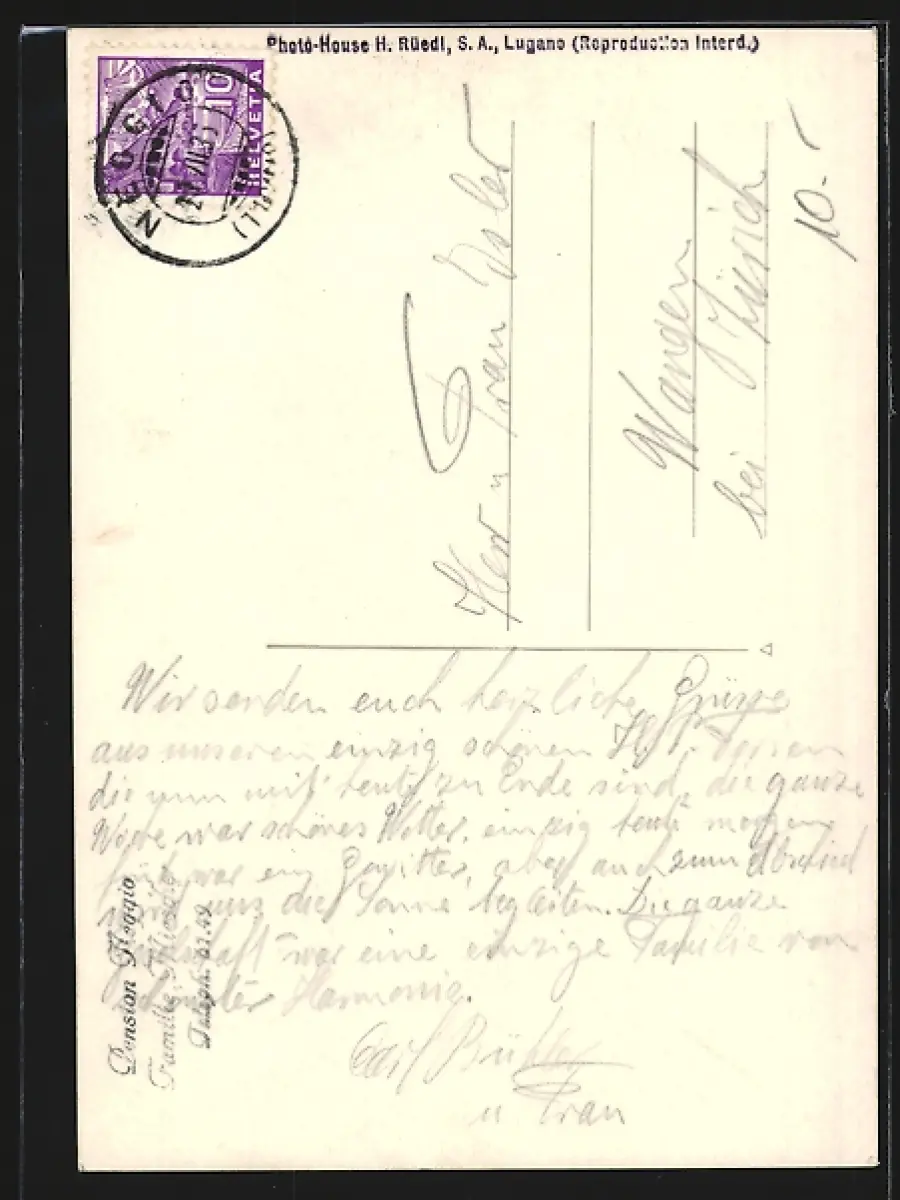 Photo-House H. Rüedi, S. A., Lugano (Reproduction interd.)
10
HELVETIA
NEGGIO
Herr u Frau Isler
Wangen
bei Zürich
10.-
Wir senden euch herzliche Grüsse
aus unseren einzig schönen
die nun mit heute zu Ende sind, die ganze
Woche war schönes Wetter, einzig heute morgen
früh war ein Gewitter, aber auch zum Abschied
wird uns die Sonne begleiten. Die ganze
war eine einzige Familie von
Harmonie.
Carl
u Frau
Pension
Familie
Teleph.